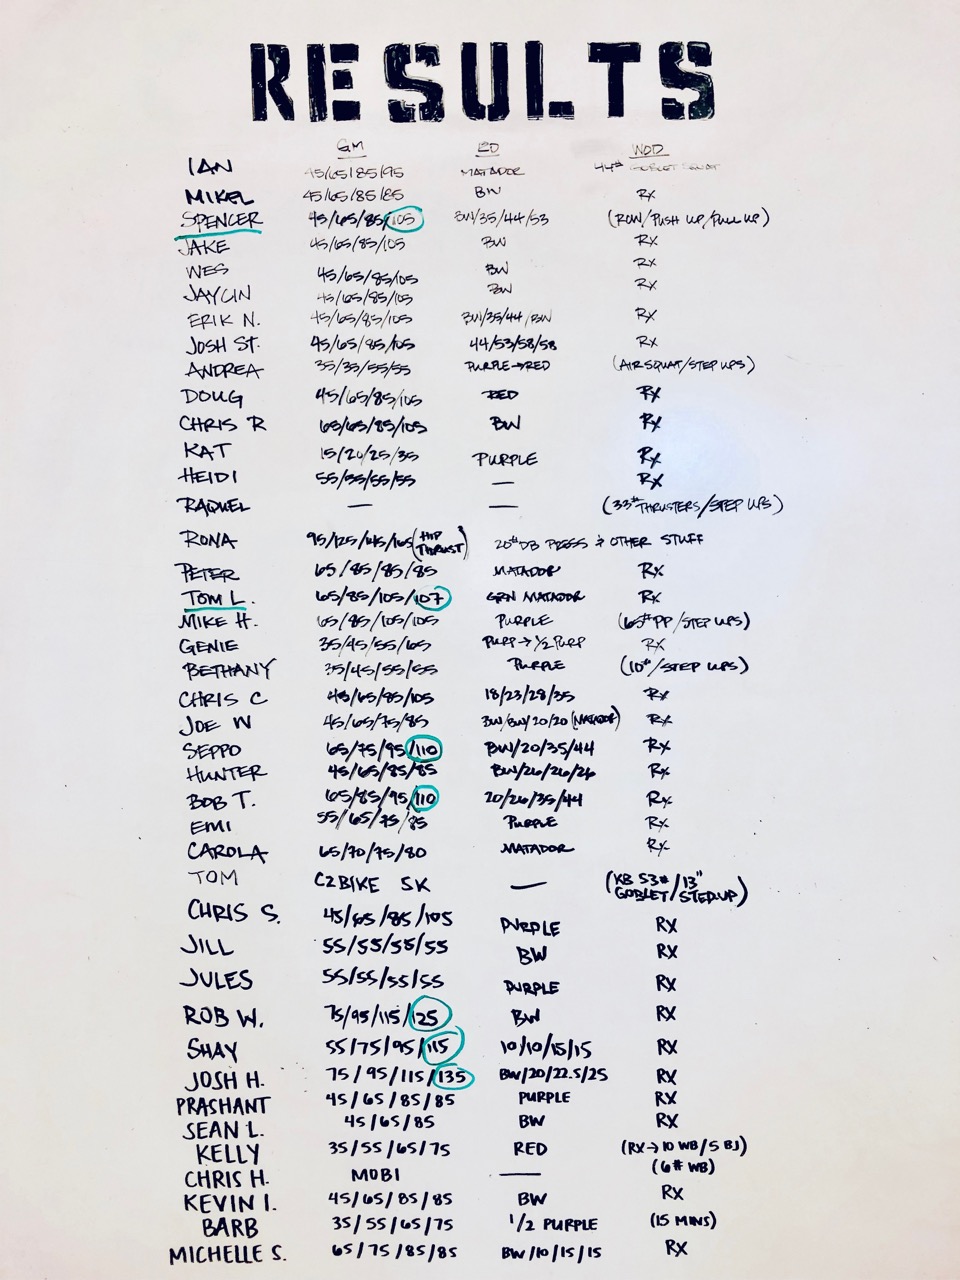 RESULTS
GM RD WOD
IAN 45/65/85/95 MATADOR 44# GOBLET SQUAT
MIKEL 45/65/85/85 BW RX
SPENCER 45/65/85/105 BW/35/44/53 (ROW/PUSH UP/PULL UP)
JAKE 45/65/85/105 BW RX
WES 45/65/85/105 BW RX
JAYCIN 45/65/85/105 BW RX
ERIK N. 45/65/85/105 BW/35/44/BW RX
JOSH ST. 45/65/85/105 44/53/58/58 RX
ANDREA 35/35/55/55 PURPLE→RED (AIR SQUAT/STEP UPS)
DOUG 45/65/85/105 RED RX
CHRIS R 65/65/85/105 BW RX
KAT 15/20/25/35 PURPLE RX
HEIDI 55/55/55/55 — RX
RAQUEL — — (33# THRUSTERS/STEP UPS)
RONA 95/125/145/165 (HIP THRUST) 20# DB PRESS & OTHER STUFF
PETER 65/85/85/85 MATADOR RX
TOM L. 65/85/105/107 GRN MATADOR RX
MIKE H. 65/85/105/105 PURPLE (65# PP/STEP UPS)
GENIE 35/45/55/65 PURP→1/2 PURP RX
BETHANY 35/45/55/55 PURPLE (10#/STEP UPS)
CHRIS C 45/65/85/105 18/23/28/35 RX
JOE W 45/65/75/85 BW/BW/20/20 (MATADOR) RX
SEPPO 65/75/95/110 BW/20/35/44 RX
HUNTER 45/65/85/85 BW/26/26/26 RX
BOB T. 65/85/95/110 20/26/35/44 RX
EMI 55/65/75/85 PURPLE RX
CAROLA 65/70/75/80 MATADOR RX
TOM C2BIKE 5K — (KB 53#/13" GOBLET/STEP UP)
CHRIS S. 45/65/85/105 PURPLE RX
JILL 55/55/55/55 BW RX
JULES 55/55/55/55 PURPLE RX
ROB W. 75/95/115/125 BW RX
SHAY 55/75/95/115 10/10/15/15 RX
JOSH H. 75/95/115/135 BW/20/22.5/25 RX
PRASHANT 45/65/85/85 PURPLE RX
SEAN L. 45/65/85 BW RX
KELLY 35/55/65/75 RED (RX→10 WB/5 BJ)
CHRIS H. MOBI — (6# WB)
KEVIN I. 45/65/85/85 BW RX
BARB 35/55/65/75 1/2 PURPLE (15 MINS)
MICHELLE S. 65/75/85/85 BW/10/15/15 RX